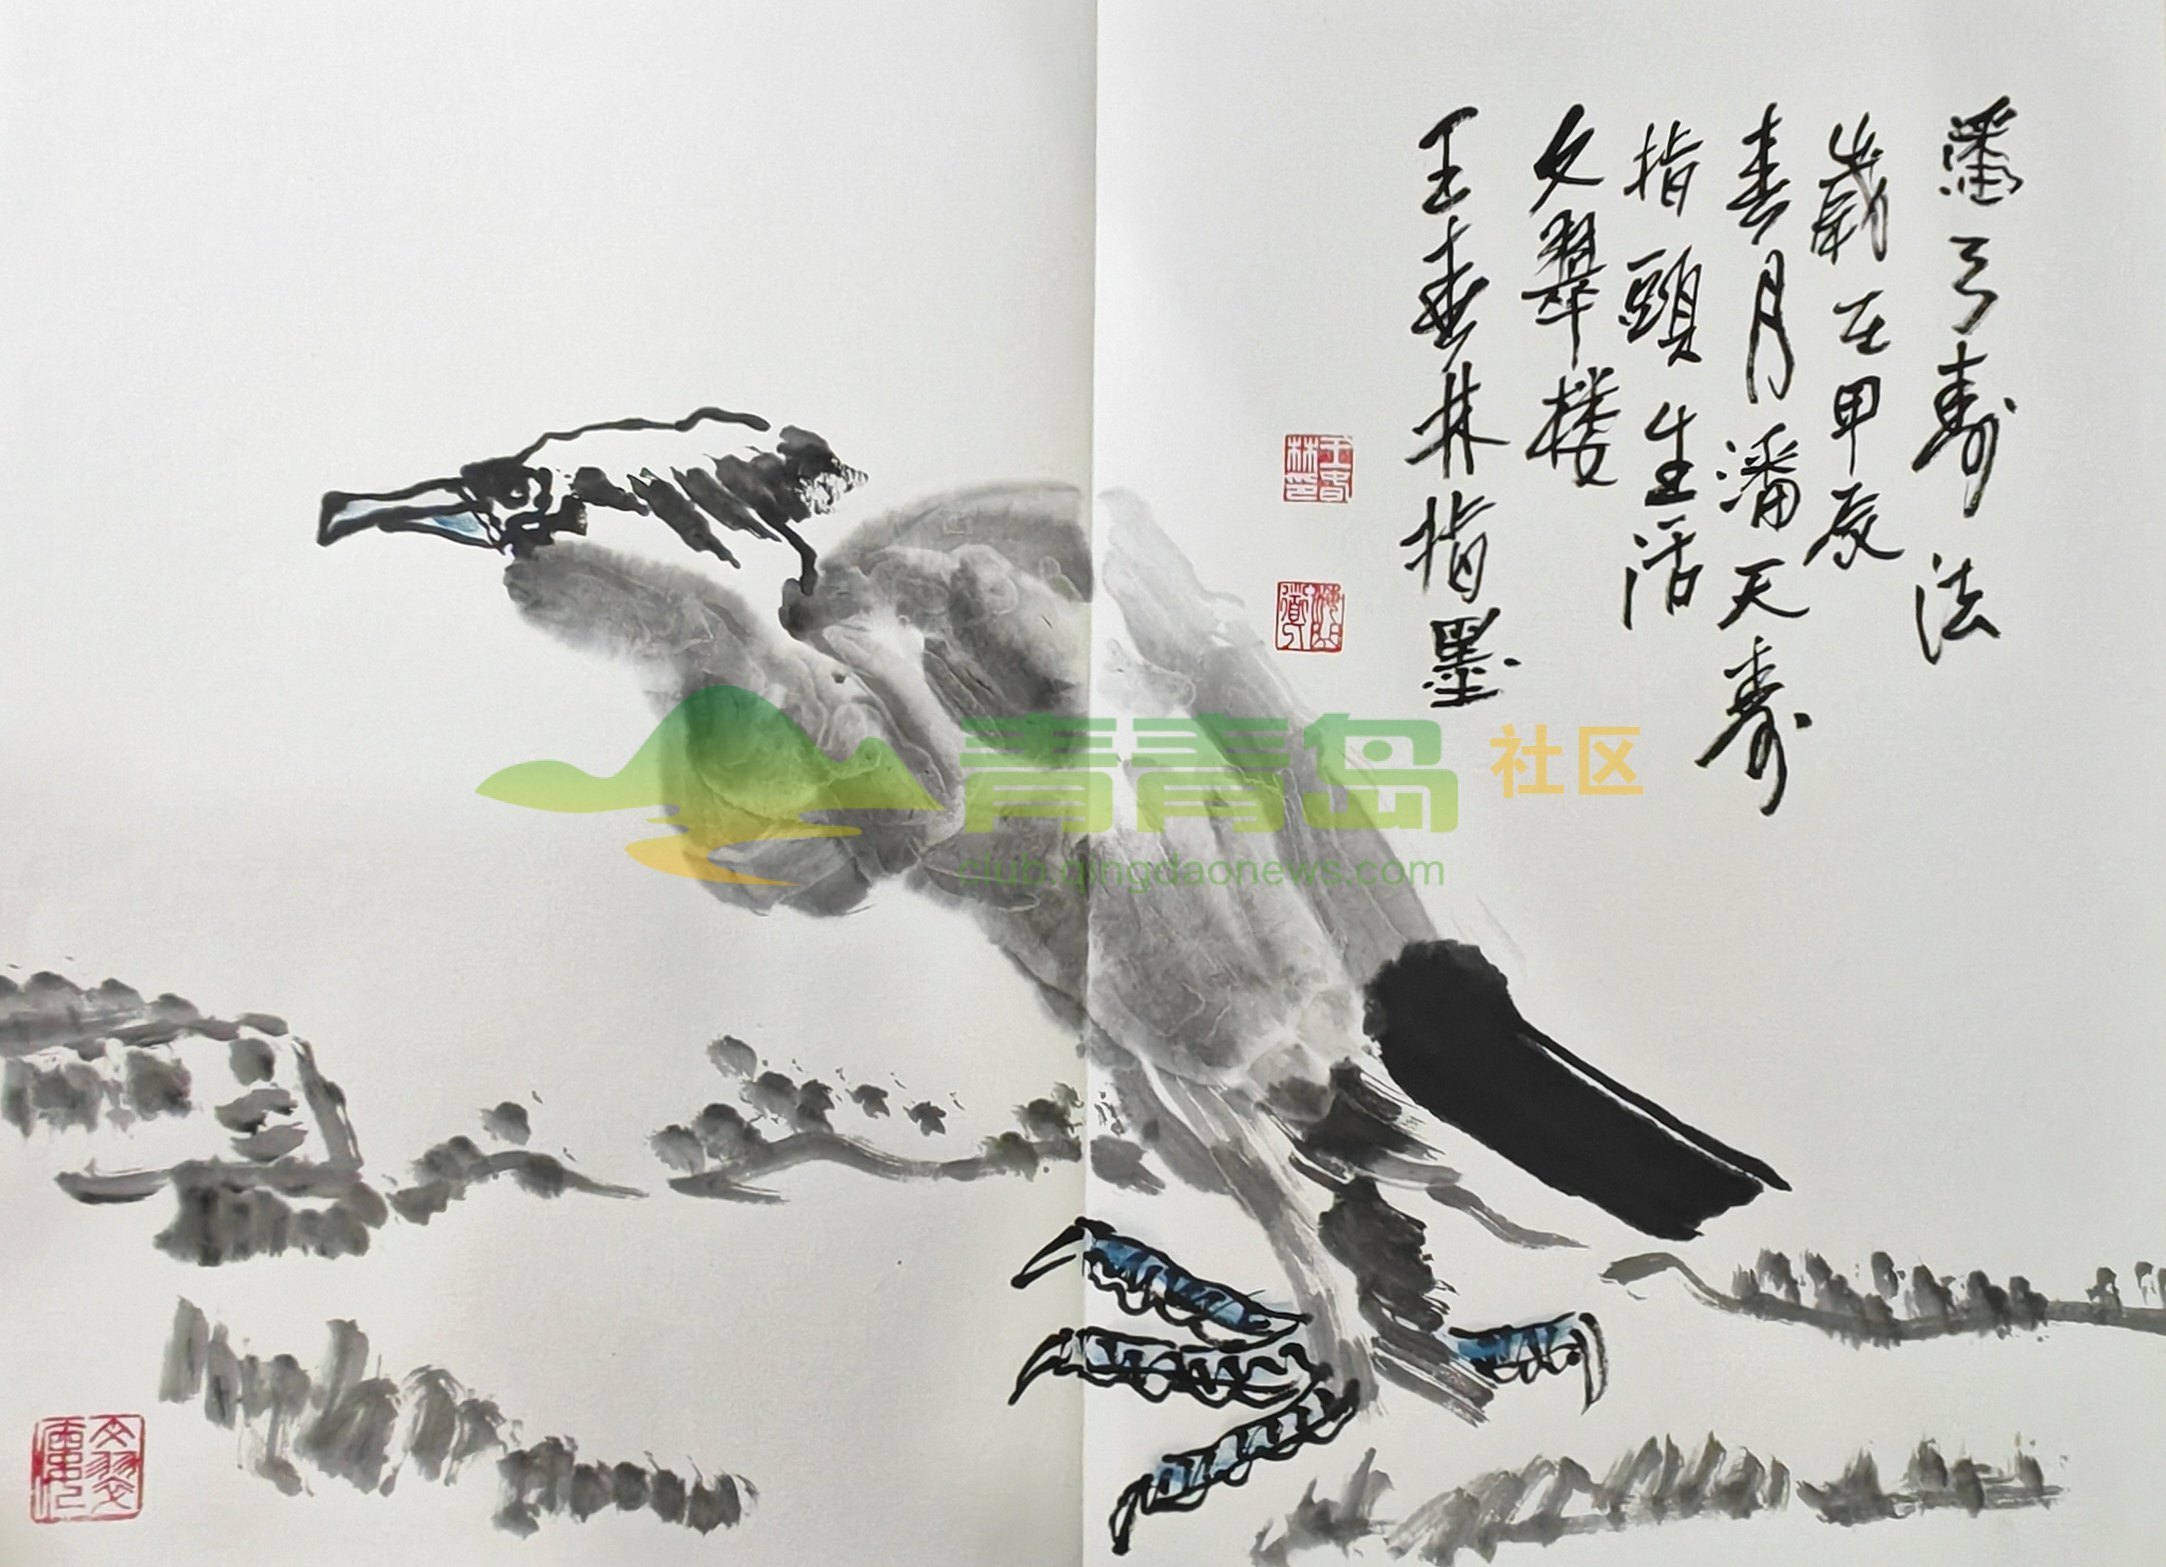 潘天寿法
歲在甲辰
春月潘天寿
指頭生活
文翠楼
王春林指墨
王春林印
青青岛社区
club.qingdaonews.com